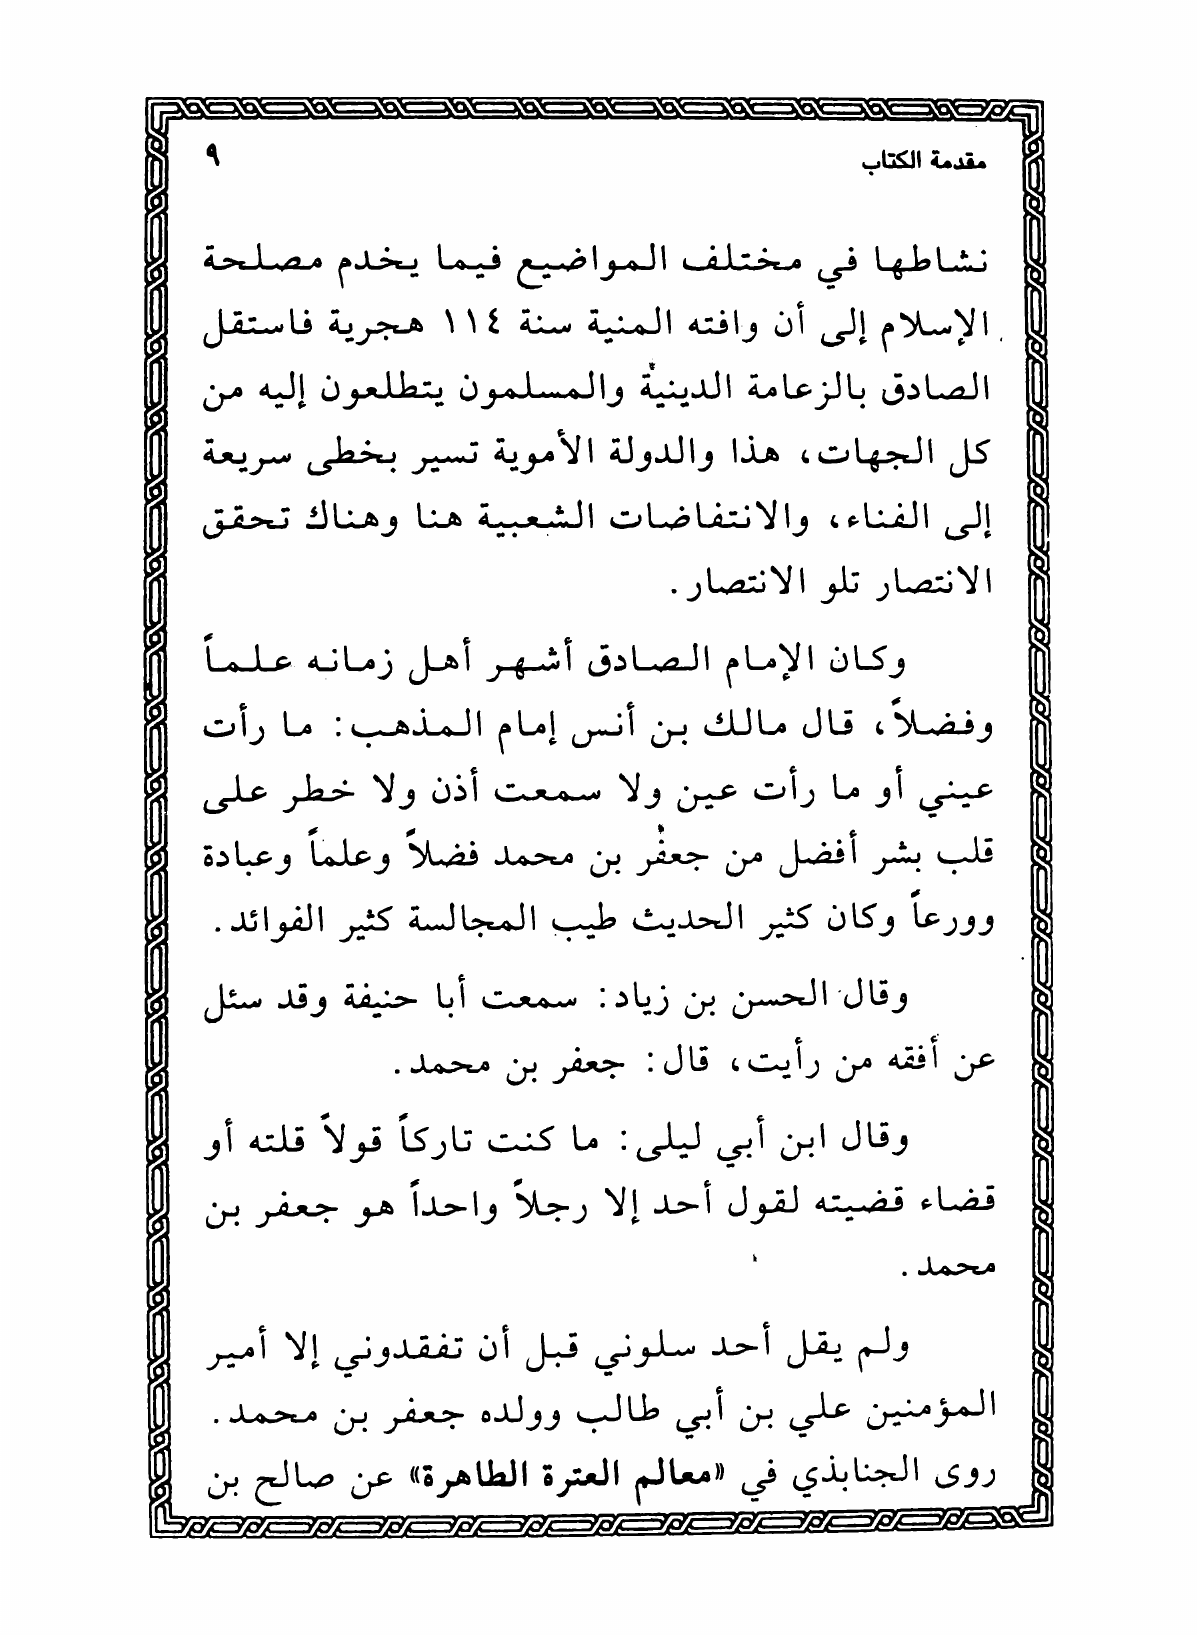 مقدمة الكتاب ٩
نشاطها في مختلف المواضيع فيما يخدم مصلحة
الإسلام إلى أن وافته المنية سنة ١١٤ هجرية فاستقل
الصادق بالزعامة الدينية والمسلمون يتطلعون إليه من
كل الجهات، هذا والدولة الأموية تسير بخطى سريعة
إلى الفناء، والانتفاضات الشعبية هنا وهناك تحقق
الانتصار تلو الانتصار.
وكان الإمام الصادق أشهر أهل زمانه علماً
وفضلاً، قال مالك بن أنس إمام المذهب: ما رأت
عيني أو ما رأت عين ولا سمعت أذن ولا خطر على
قلب بشر أفضل من جعفر بن محمد فضلاً وعلماً وعبادة
وورعاً وكان كثير الحديث طيب المجالسة كثير الفوائد.
وقال الحسن بن زياد: سمعت أبا حنيفة وقد سئل
عن أفقه من رأيت، قال: جعفر بن محمد.
وقال ابن أبي ليلى: ما كنت تاركاً قولاً قلته أو
قضاء قضيته لقول أحد إلا رجلاً واحداً هو جعفر بن
محمد.
ولم يقل أحد سلوني قبل أن تفقدوني إلا أمير
المؤمنين علي بن أبي طالب وولده جعفر بن محمد.
روى الجنابذي في «معالم العترة الطاهرة» عن صالح بن